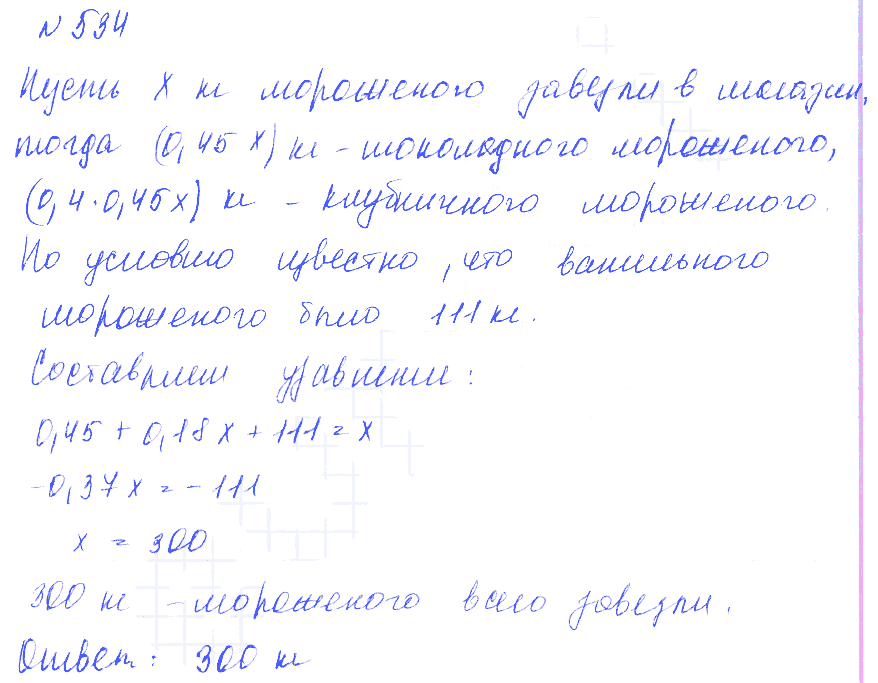 № 534
Пусть x кг мороженого завезли в магазин,
тогда (0,45 x) кг - шоколадного мороженого,
(0,4 · 0,45x) кг - клубничного мороженого.
По условию известно, что ванильного
мороженого было 111 кг.
Составляем уравнение:
0,45 + 0,18 x + 111 = x
-0,37 x = - 111
x = 300
300 кг - мороженого всего завезли.
Ответ: 300 кг